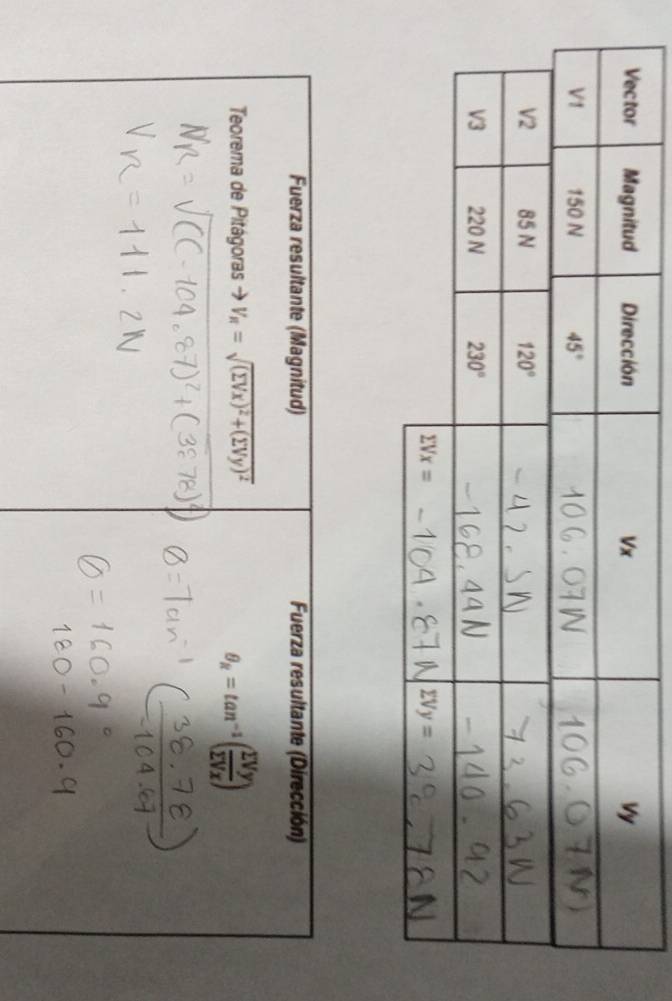 Vector Magnitud Dirección Vx Vy
V1 150 N 45° 106.07N 106.07N
V2 85 N 120° -42.5N 73.63N
V3 220 N 230° -168.44N -140.92
ΣVx = -104.87N ΣVy = 38.78N
Fuerza resultante (Magnitud)
Teorema de Pitágoras → V_R = √(ΣVx)² + (ΣVy)²
VR = √((-104.87)² + (38.78)²)
VR = 111.2N
Fuerza resultante (Dirección)
θ_R = tan⁻¹ (ΣVy/ΣVx)
θ = Tan⁻¹ (38.78/-104.87)
θ = 160.9°
180 - 160.9